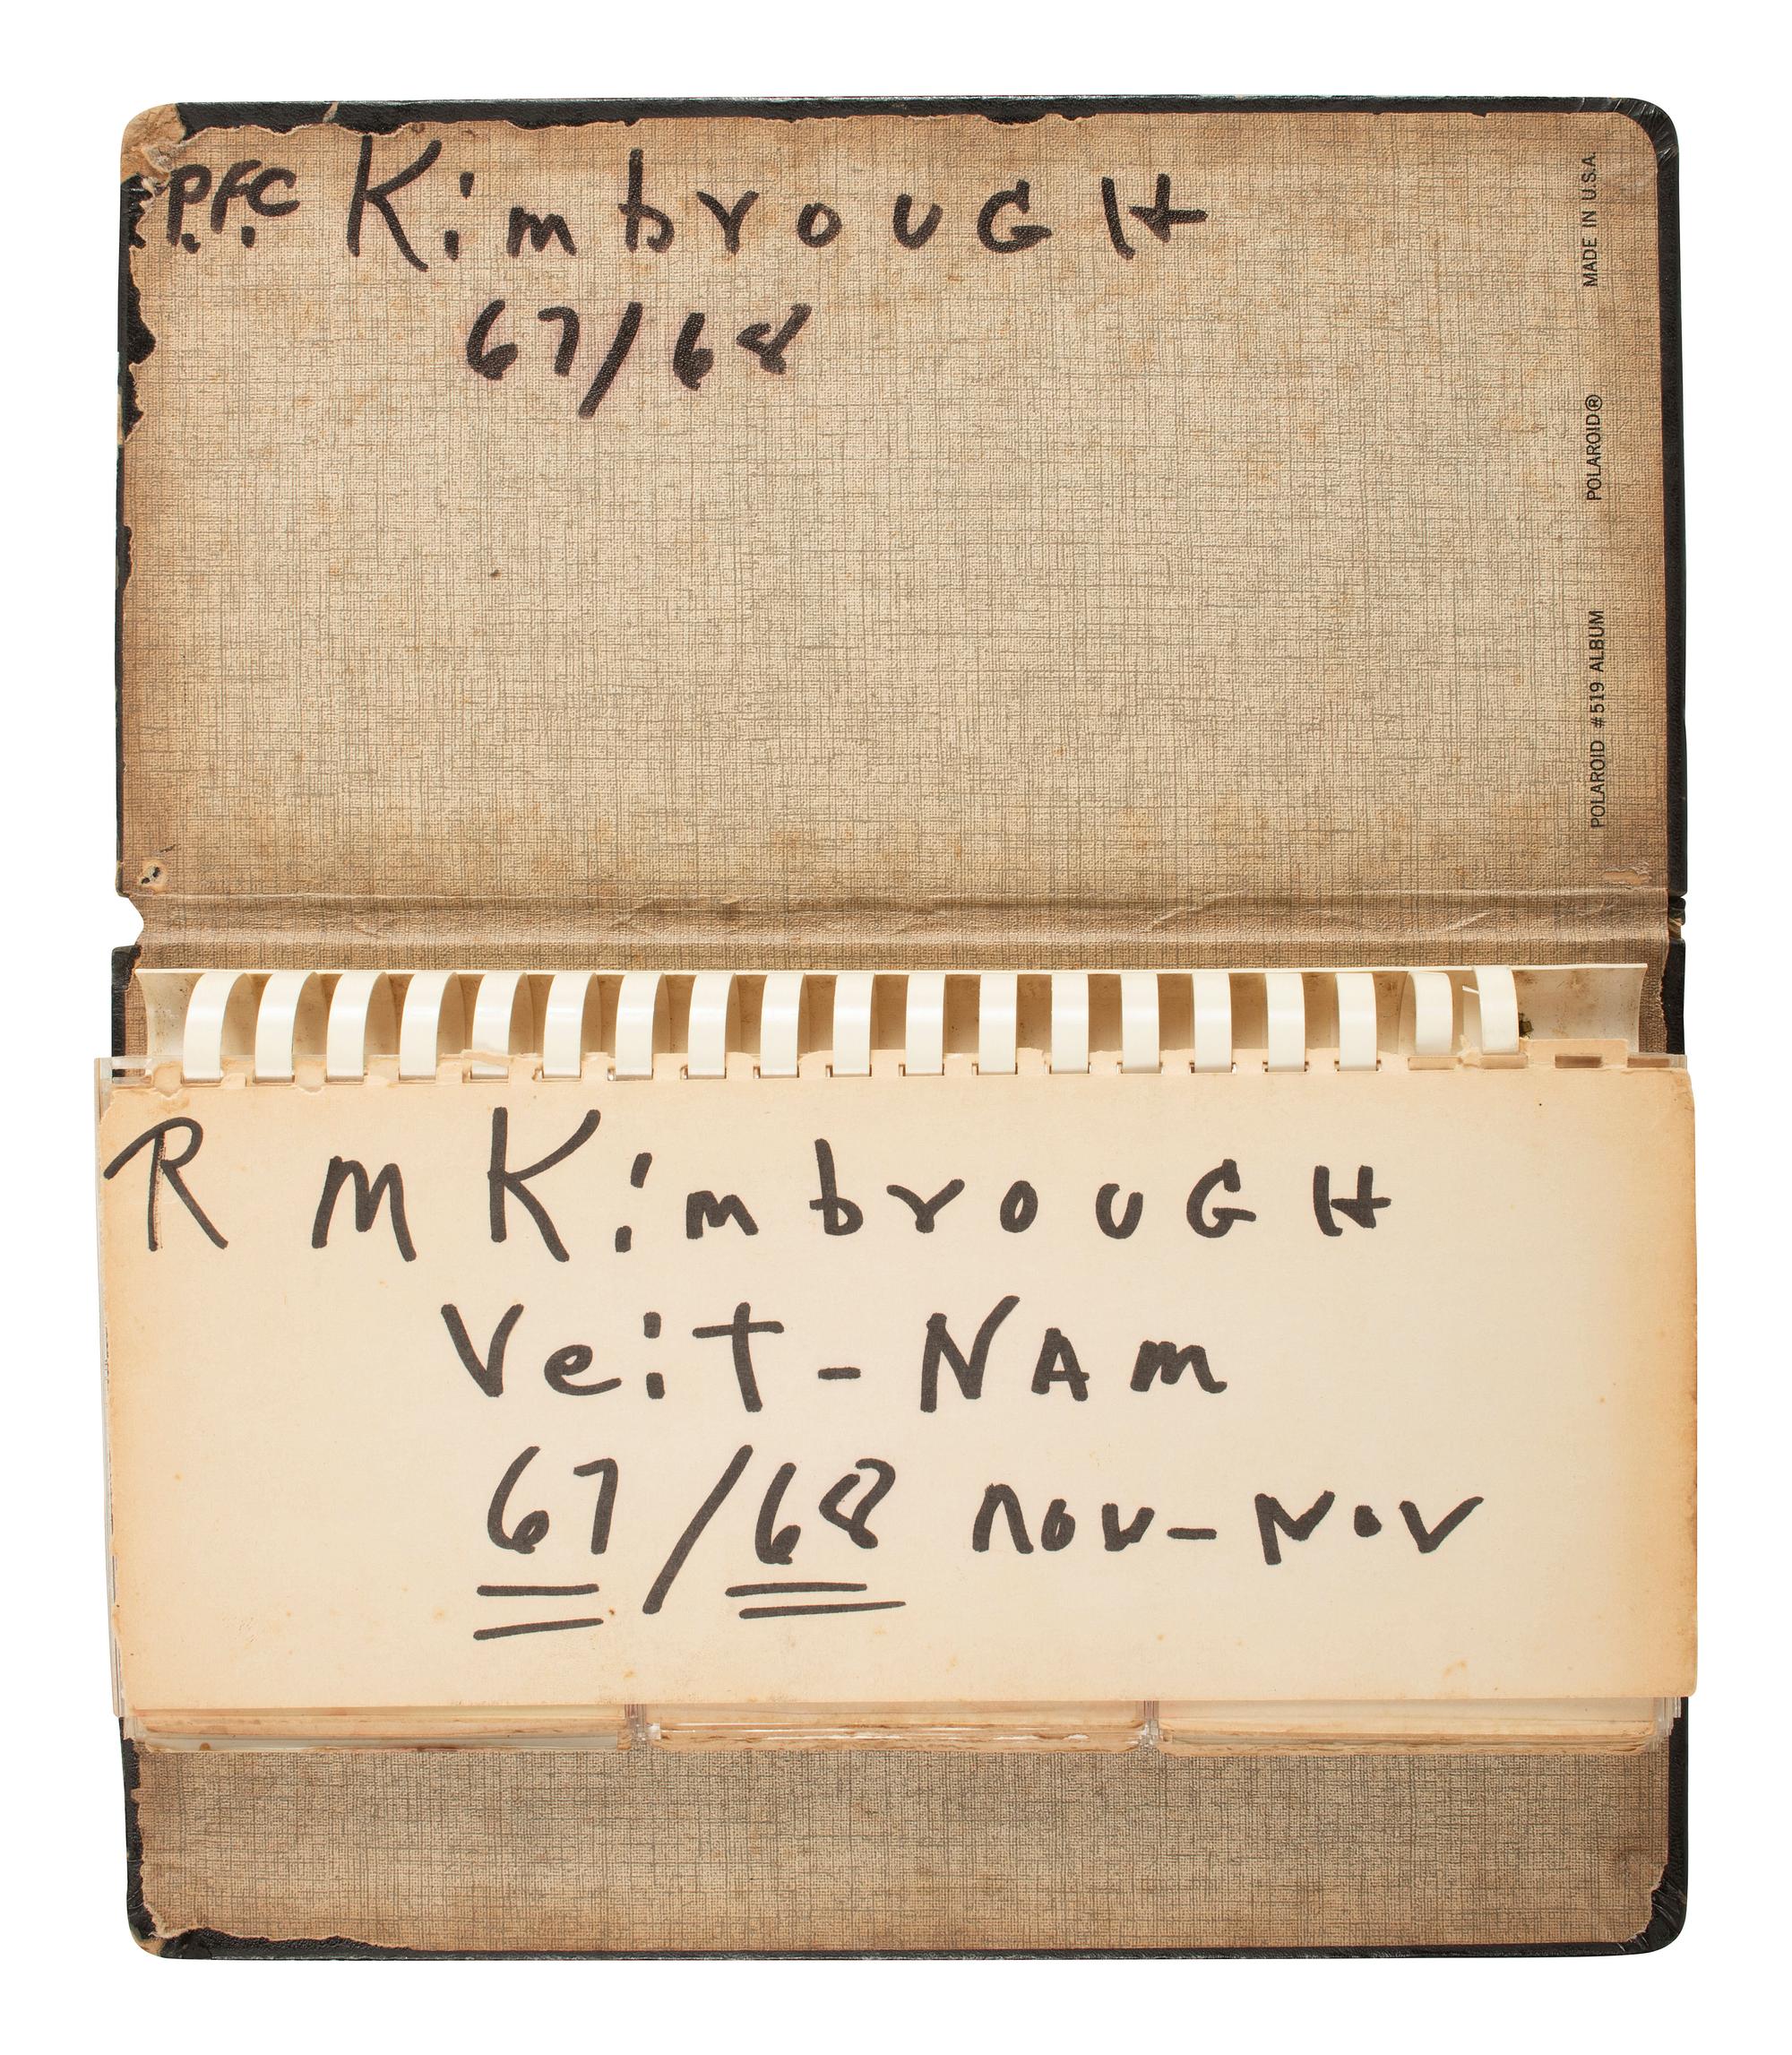 P.F.C Kimbrough
67/68
MADE IN U.S.A.
POLAROID®
POLAROID #519 ALBUM
R M KimbrouGH
VeiT-NAm
67/68 nov-Nov